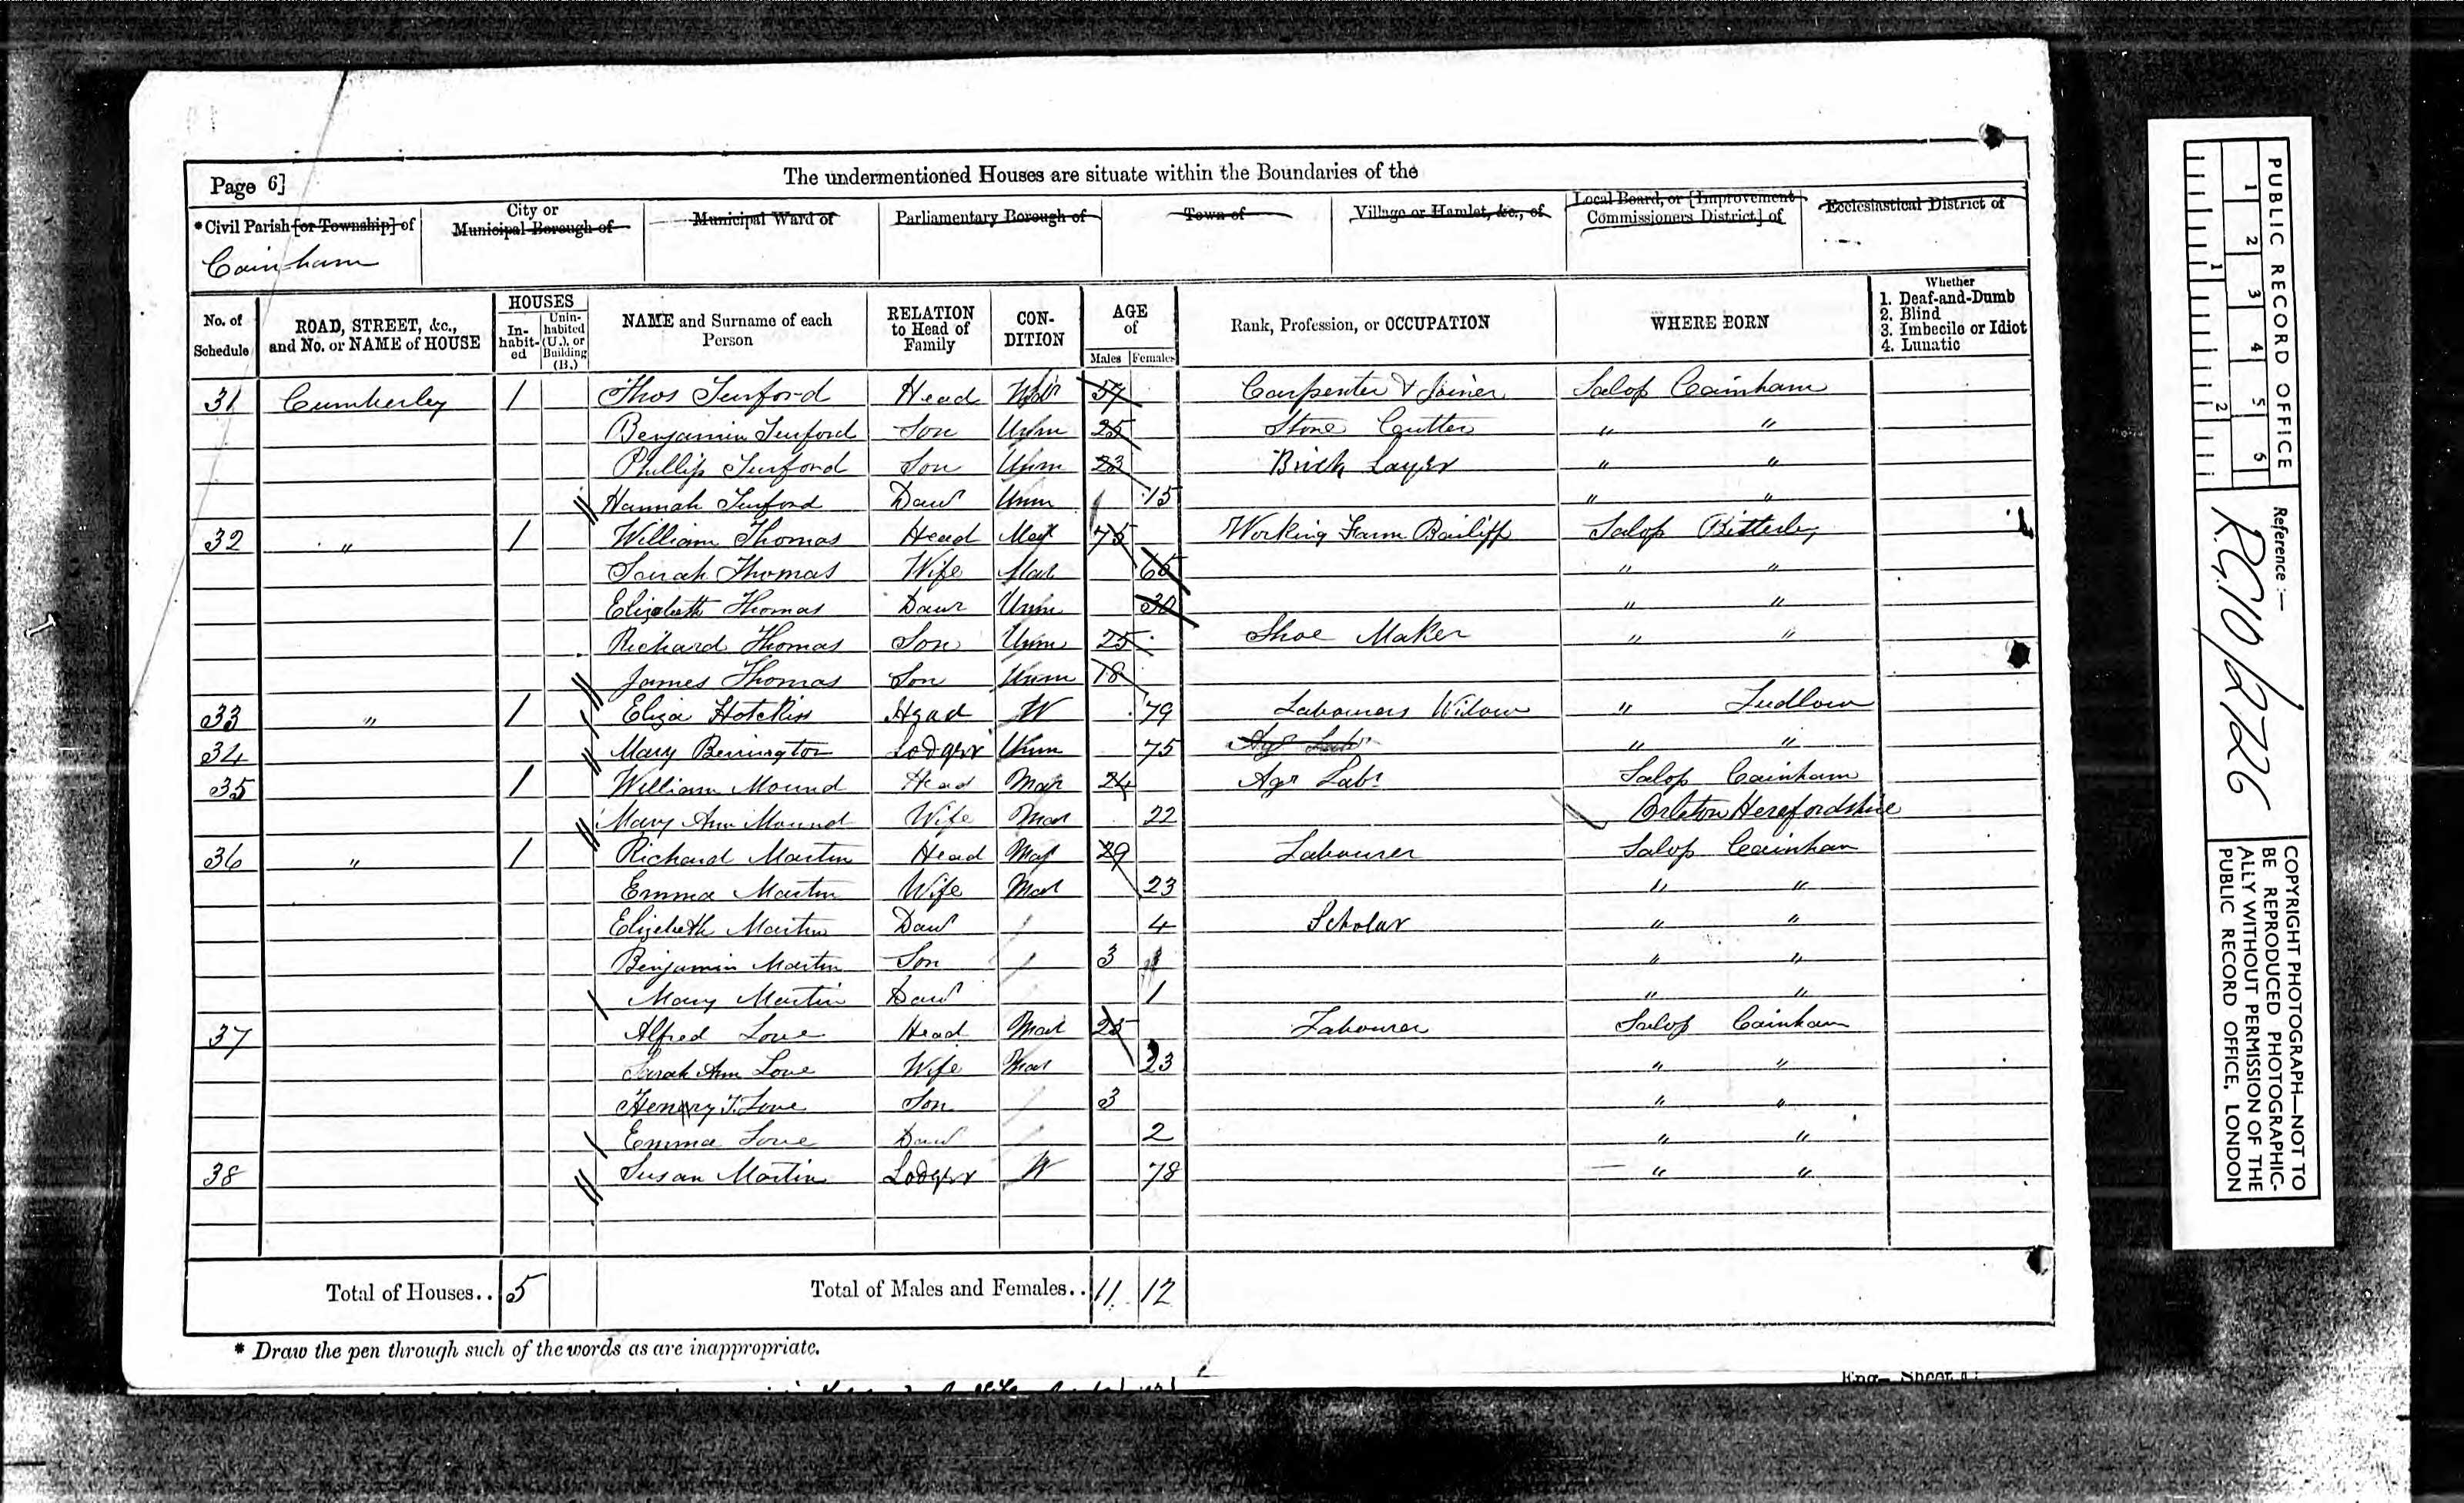 Page 6]
The undermentioned Houses are situate within the Boundaries of the
*Civil Parish [or Township] of
City or Municipal Borough of
Municipal Ward of
Parliamentary Borough of
Town of
Village or Hamlet, &c., of
Local Board, or [Improvement Commissioners District] of
Ecclesiastical District of
Cainham
No. of Schedule
ROAD, STREET, &c., and No. or NAME of HOUSE
HOUSES
In-habit-ed
Unin-habited (U.), or Building (B.)
NAME and Surname of each Person
RELATION to Head of Family
CON-DITION
AGE of
Males Females
Rank, Profession, or OCCUPATION
WHERE BORN
Whether
1. Deaf-and-Dumb
2. Blind
3. Imbecile or Idiot
4. Lunatic
31 Cumberley 1 Thos Turford Head 57 Carpenter & Joiner Salop Cainham
Benjamin Turford Son Unm 25 Stone Cutter " "
Phillip Turford Son Unm 23 Brick Layer " "
Hannah Turford Daur Unm 15 " "
32 " 1 William Thomas Head Mar 75 Working Farm Bailiff Salop Bitterley
Sarah Thomas Wife Mar 65 " "
Elizabeth Thomas Daur Unm 30 " "
Richard Thomas Son Unm 25 Shoe Maker " "
James Thomas Son Unm 18
33 " 1 Eliza Hotchkiss Head W 79 Labourers Widow " Ludlow
34 Mary Bennington Lodger Unm 75 Agr Labr " "
35 1 William Mound Head Mar 24 Agr Labr Salop Cainham
Mary Ann Mound Wife Mar 22 Orleton Herefordshire
36 " 1 Richard Martin Head Mar 29 Labourer Salop Cainham
Emma Martin Wife Mar 23 " "
Elizabeth Martin Daur 4 Scholar " "
Benjamin Martin Son 3 " "
Mary Martin Daur 1 " "
37 Alfred Love Head Mar 25 Labourer Salop Cainham
Sarah Ann Love Wife Mar 23 " "
Henry T. Love Son 3 " "
Emma Love Daur 2 " "
38 Susan Martin Lodger W 78 " "
Total of Houses.. 5
Total of Males and Females.. 11 12
* Draw the pen through such of the words as are inappropriate.
Eng— Sheet
PUBLIC RECORD OFFICE
1 2 3 4 5 6
1 2
Reference :—
R.G.10/2726
COPYRIGHT PHOTOGRAPH—NOT TO
BE REPRODUCED PHOTOGRAPHIC-
ALLY WITHOUT PERMISSION OF THE
PUBLIC RECORD OFFICE, LONDON